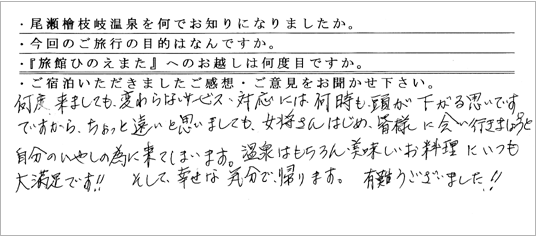 ・尾瀬檜枝岐温泉を何でお知りになりましたか。
・今回のご旅行の目的はなんですか。
・『旅館ひのえまた』へのお越しは何度目ですか。
・ご宿泊いただきましたご感想・ご意見をお聞かせ下さい。
何度来ましても、変わらないサービス・対応には何時も、頭が下がる思いです
ですから、ちょっと遠いと思いましても、女将さんはじめ、皆様に会い行きましょうと
自分のいやしの為に来てしまいます。温泉はもちろん・美味しいお料理にいつも
大満足です!! そして、幸せな気分で、帰ります。 有難うございました!!